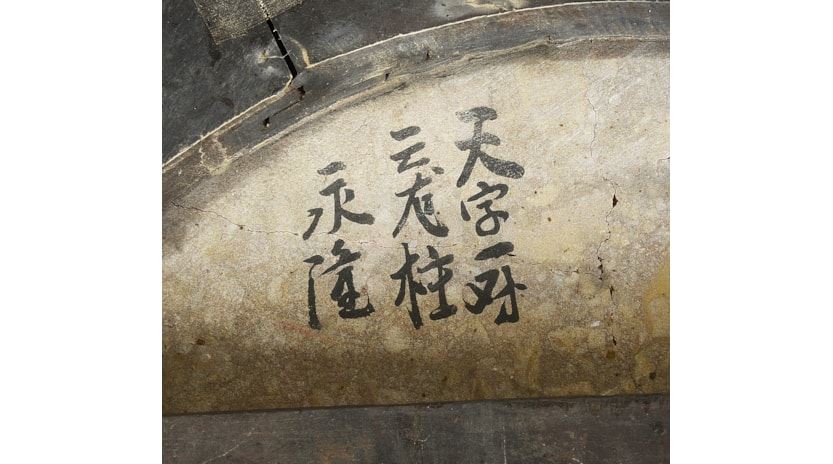 天字一对
云龙柱
永隆